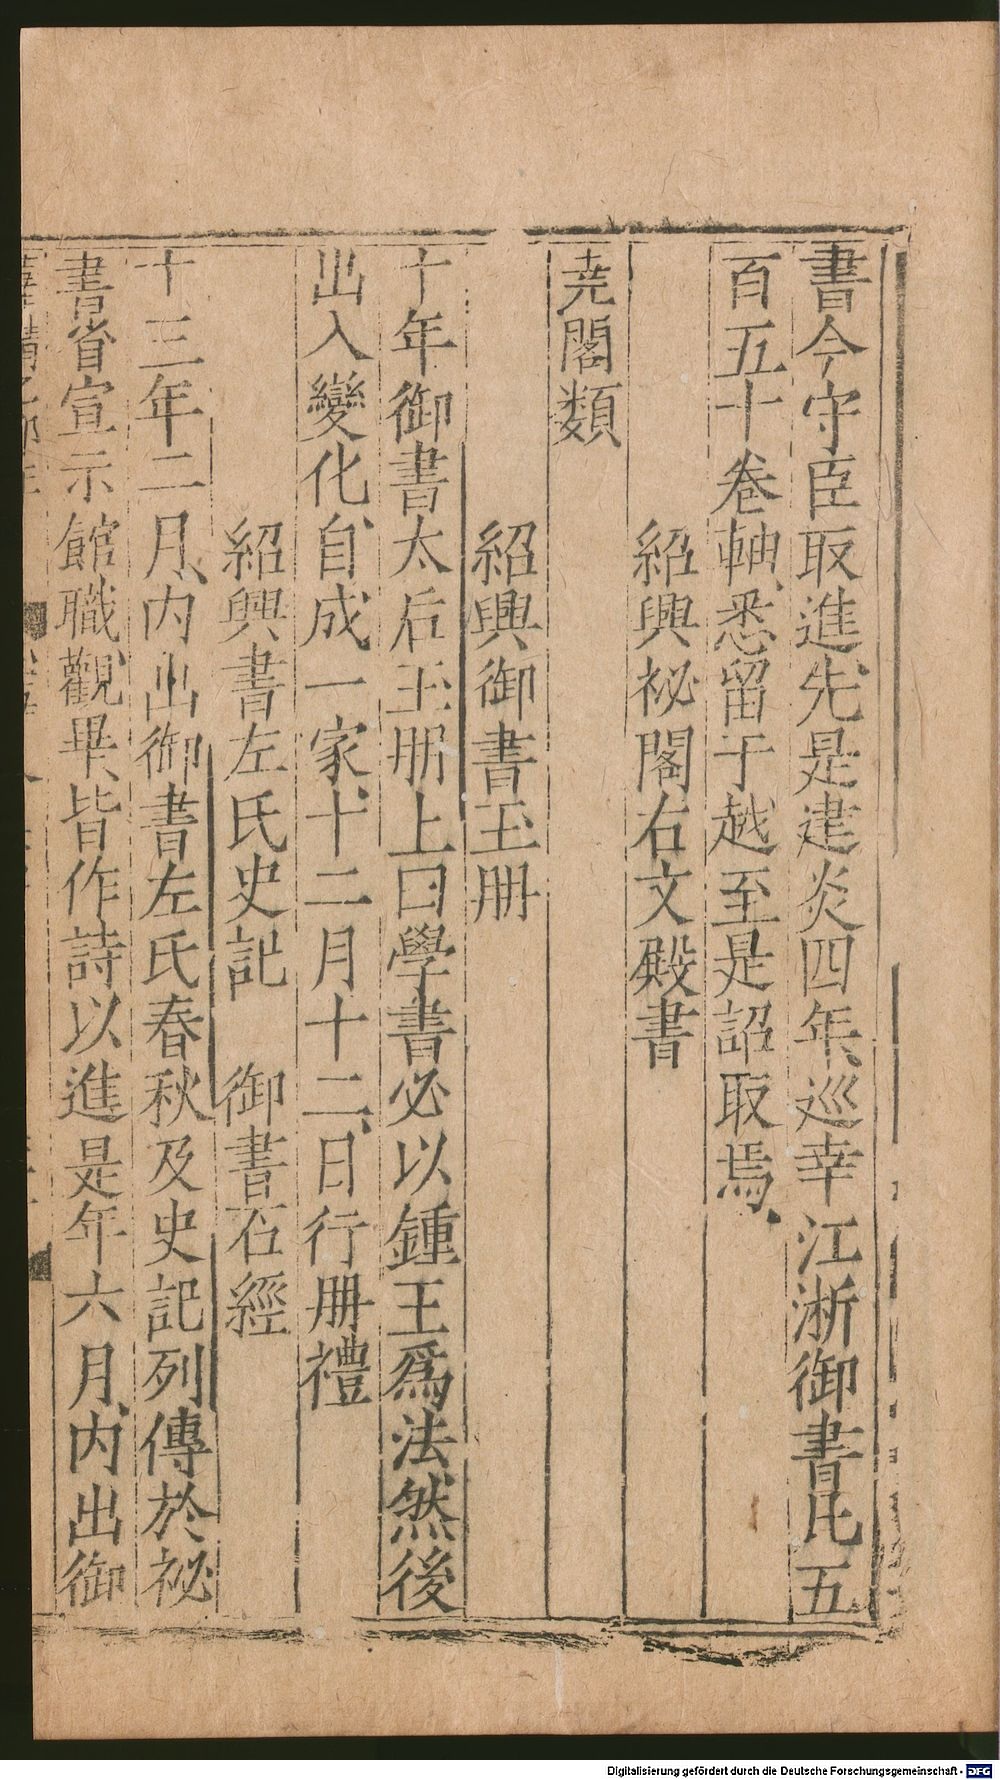 書今守臣取進先是建炎四年巡幸江浙御書凡五
百五十卷軸悉留于越至是詔取焉
紹興祕閣右文殿書
堯閣類
紹興御書玉册
十年御書太后玉册上曰學書必以鍾王爲法然後
出入變化自成一家十二月十二日行册禮
紹興書左氏史記　御書石經
十三年二月内出御書左氏春秋及史記列傳於祕
書省宣示館職觀畢皆作詩以進是年六月内出御
Digitalisierung gefördert durch die Deutsche Forschungsgemeinschaft - DFG